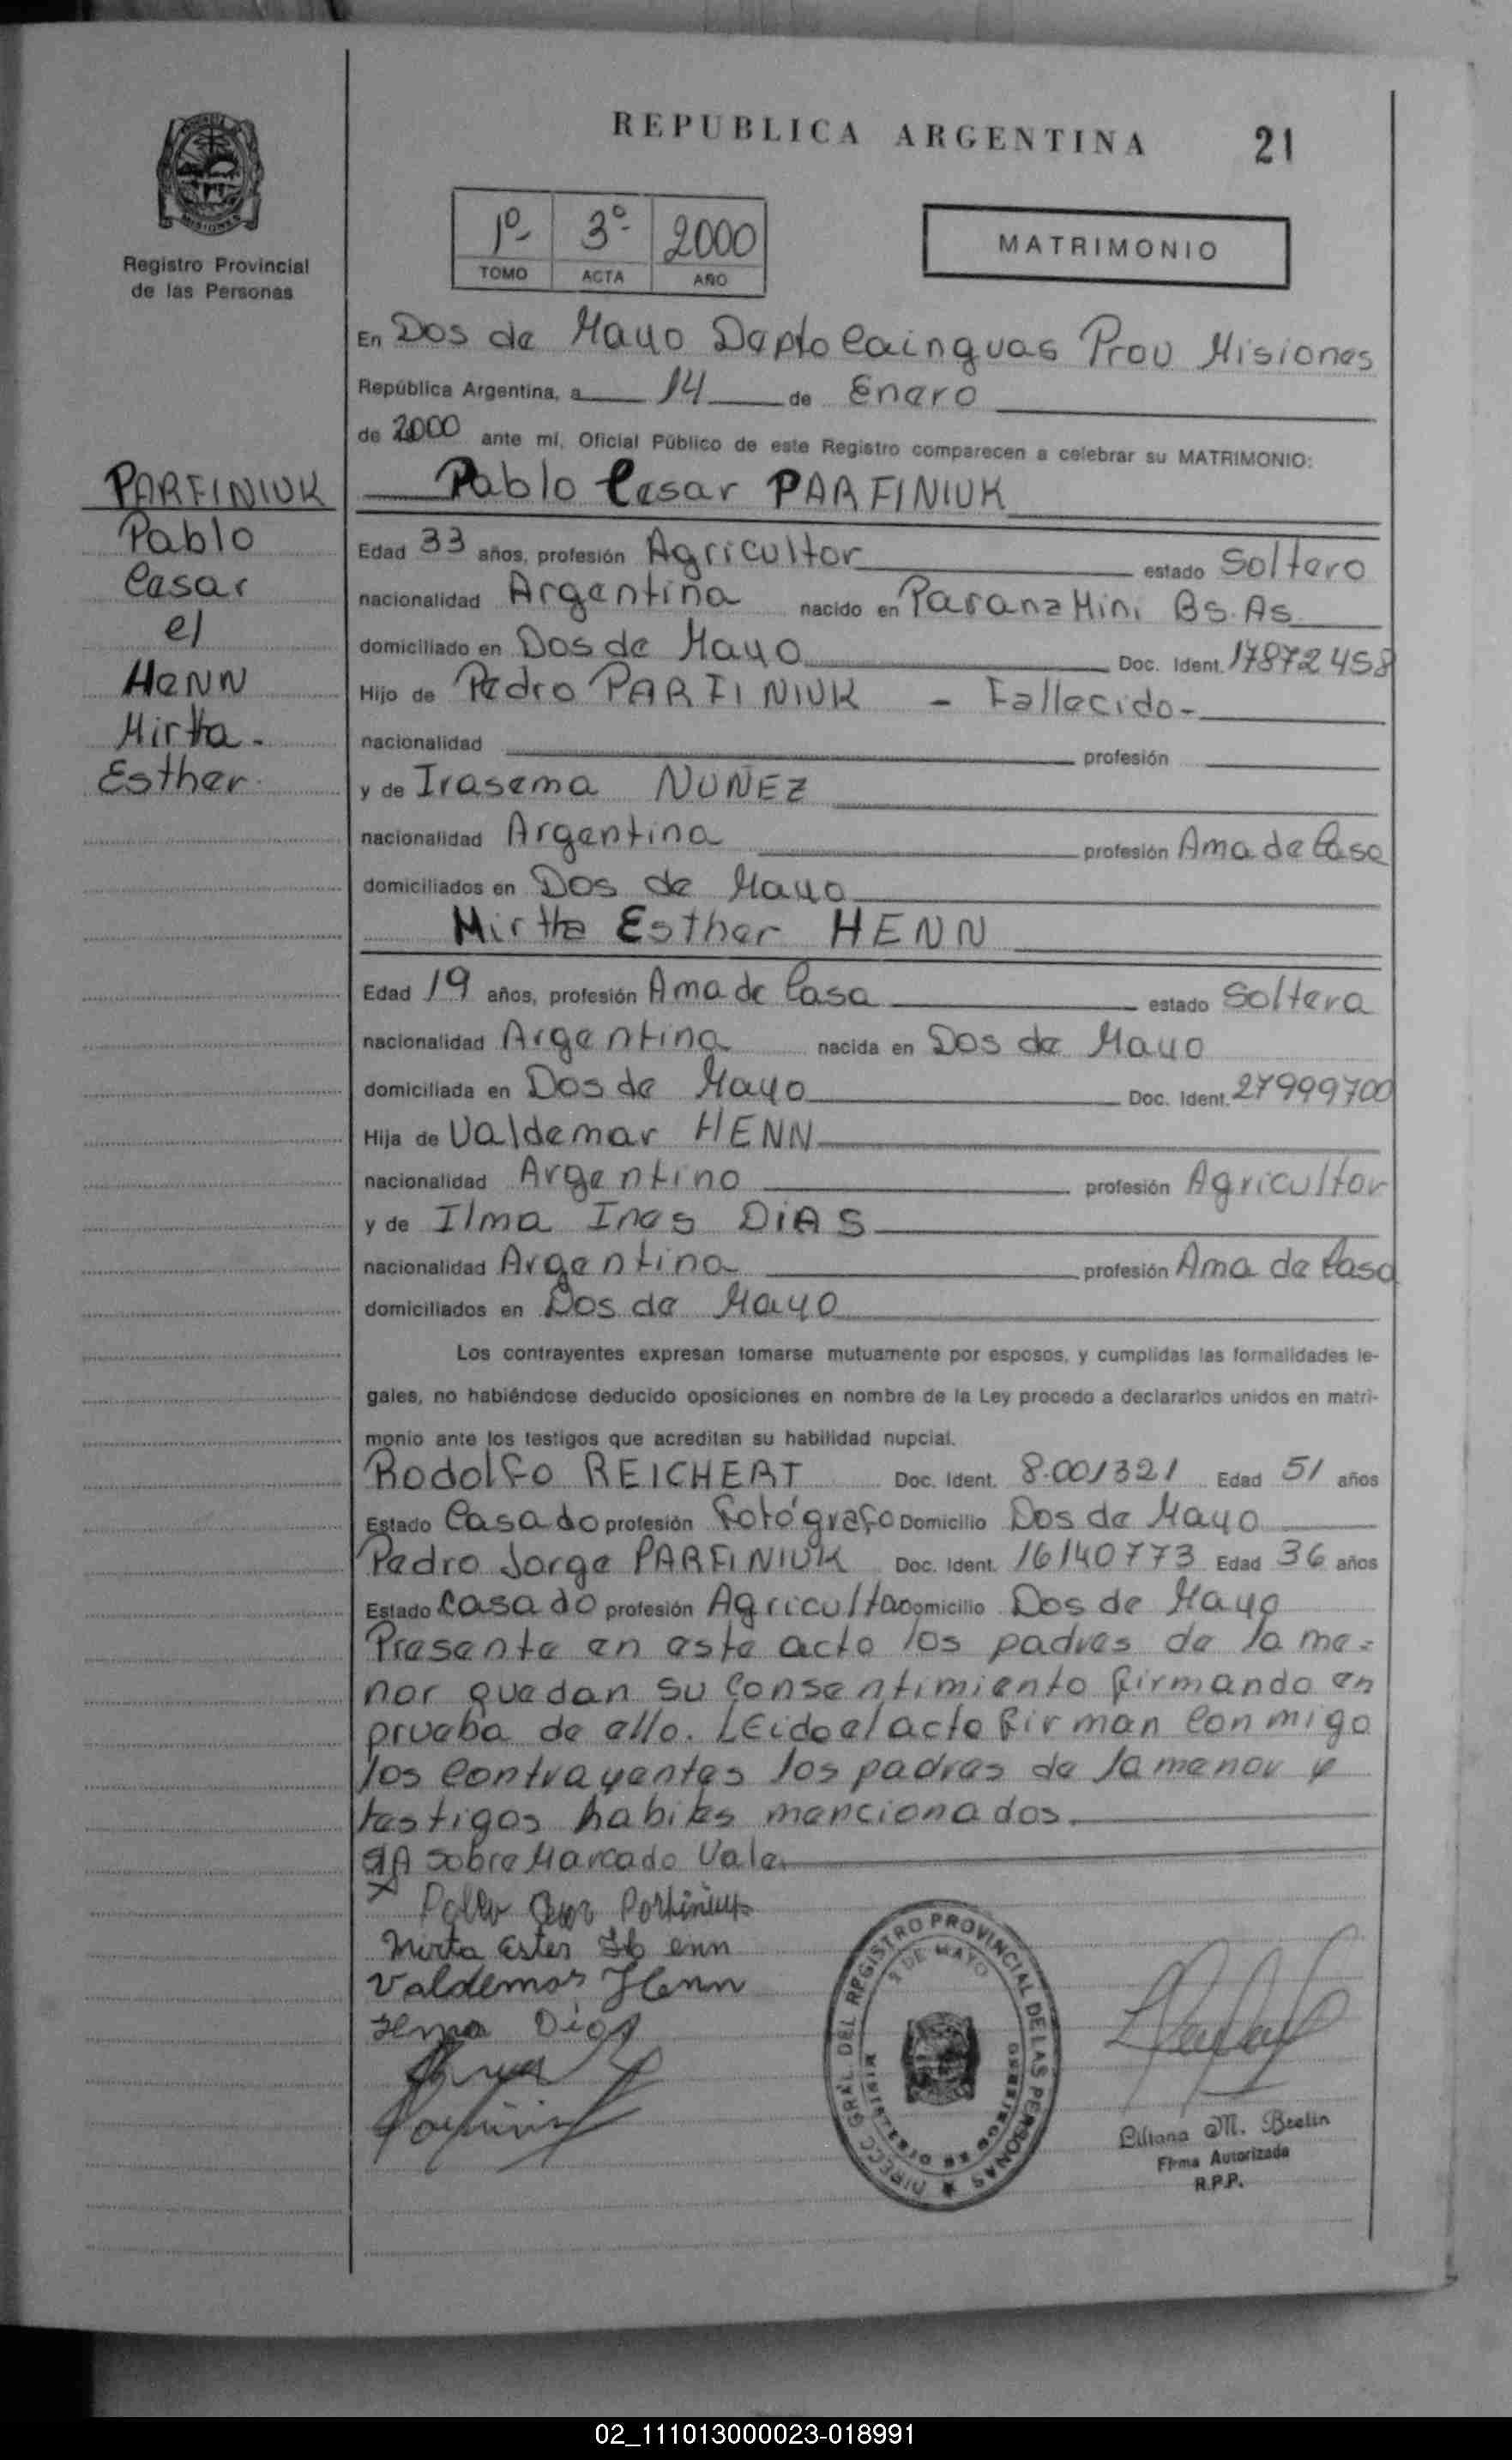 REPUBLICA ARGENTINA 21
MISIONES
Registro Provincial
de las Personas
1º 3º 2000
TOMO ACTA AÑO
MATRIMONIO
En Dos de Mayo Depto Cainguas Prov Misiones
República Argentina, a 14 de Enero
de 2000 ante mí, Oficial Público de este Registro comparecen a celebrar su MATRIMONIO:
PARFINIUK
Pablo
Cesar
el
HENN
Mirtha.
Esther
Pablo Cesar PARFINIUK
Edad 33 años, profesión Agricultor estado Soltero
nacionalidad Argentina nacido en Parana Mini Bs. As.
domiciliado en Dos de Mayo Doc. Ident. 17872458
Hijo de Pedro PARFINIUK - Fallecido-
nacionalidad profesión
y de Irasema NUNEZ
nacionalidad Argentina profesión Ama de Casa
domiciliados en Dos de Mayo
Mirtha Esther HENN
Edad 19 años, profesión Ama de Casa estado Soltera
nacionalidad Argentina nacida en Dos de Mayo
domiciliada en Dos de Mayo Doc. Ident. 27999700
Hija de Valdemar HENN
nacionalidad Argentino profesión Agricultor
y de Ilma Ines DiAS
nacionalidad Argentina profesión Ama de Casa
domiciliados en Dos de Mayo
Los contrayentes expresan tomarse mutuamente por esposos, y cumplidas las formalidades le-
gales, no habiéndose deducido oposiciones en nombre de la Ley procedo a declararlos unidos en matri-
monio ante los testigos que acreditan su habilidad nupcial.
Rodolfo REICHERT Doc. Ident. 8.001321 Edad 51 años
Estado Casado profesión Fotógrafo Domicilio Dos de Mayo
Pedro Jorge PARFINIUK Doc. Ident. 16140773 Edad 36 años
Estado Casado profesión Agricultor Domicilio Dos de Mayo
Presente en este acto los padres de la me=
nor quedan su consentimiento firmando en
prueba de ello. LEido el acto firman Conmigo
los Contrayentes los padres de la menor y
testigos habiles mencionados.
SA sobre Marcado Vale.
x Pablo Cesar Parfiniuk
Mirta Ester Henn
Valdemar Henn
Ilma Dias
DIRECC GRAL DEL REGISTRO PROVINCIAL DE LAS PERSONAS
2 DE MAYO
MINISTERIO DE GOBIERNO
Liliana M. Beelin
Firma Autorizada
R.P.P.
02_111013000023-018991